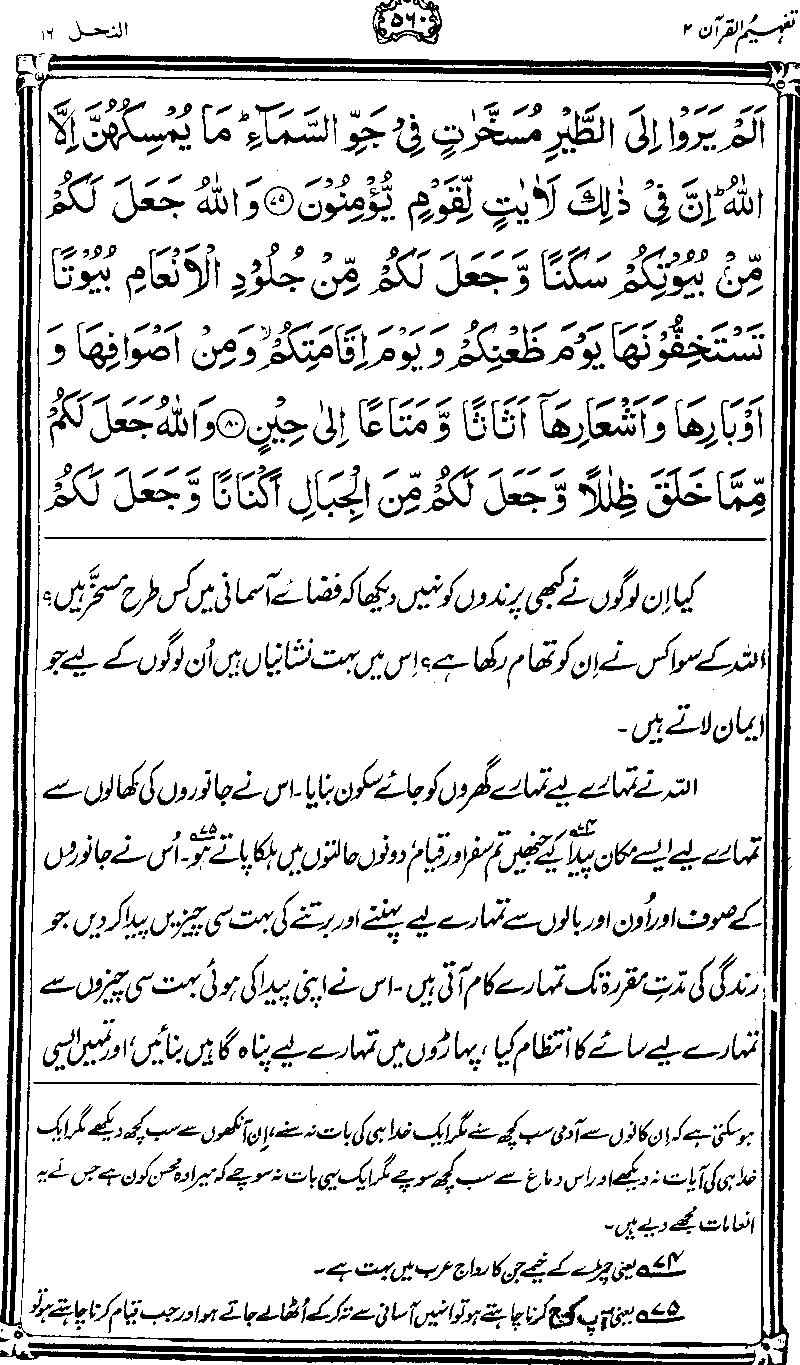 تفہیم القرآن ۲
۵۶۰
النحل ۱۶
اَلَمْ يَرَوْا اِلَى الطَّيْرِ مُسَخَّرٰتٍ فِيْ جَوِّ السَّمَآءِ ؕ مَا يُمْسِكُهُنَّ اِلَّا
اللّٰهُ ؕ اِنَّ فِيْ ذٰلِكَ لَاٰيٰتٍ لِّقَوْمٍ يُّؤْمِنُوْنَ ﴿۷۹﴾ وَاللّٰهُ جَعَلَ لَكُمْ
مِّنْۢ بُيُوْتِكُمْ سَكَنًا وَّجَعَلَ لَكُمْ مِّنْ جُلُوْدِ الْاَنْعَامِ بُيُوْتًا
تَسْتَخِفُّوْنَهَا يَوْمَ ظَعْنِكُمْ وَيَوْمَ اِقَامَتِكُمْ ۙ وَمِنْ اَصْوَافِهَا وَ
اَوْبَارِهَا وَاَشْعَارِهَآ اَثَاثًا وَّمَتَاعًا اِلٰى حِيْنٍ ﴿۸۰﴾ وَاللّٰهُ جَعَلَ لَكُمْ
مِّمَّا خَلَقَ ظِلٰلًا وَّجَعَلَ لَكُمْ مِّنَ الْجِبَالِ اَكْنَانًا وَّجَعَلَ لَكُمْ
کیا اِن لوگوں نے کبھی پرندوں کو نہیں دیکھا کہ فضائے آسمانی میں کس طرح مسخّر ہیں؟
اللہ کے سوا کس نے اِن کو تھام رکھا ہے؟ اِس میں بہت نشانیاں ہیں اُن لوگوں کے لیے جو
ایمان لاتے ہیں۔
اللہ نے تمہارے لیے تمہارے گھروں کو جائے سکون بنایا۔ اس نے جانوروں کی کھالوں سے
تمہارے لیے ایسے مکان پیدا کیے ۷۴ جنھیں تم سفر اور قیام، دونوں حالتوں میں ہلکا پاتے ہو ۷۵۔ اُس نے جانوروں
کے صوف اور اُون اور بالوں سے تمہارے لیے پہننے اور برتنے کی بہت سی چیزیں پیدا کر دیں جو
زندگی کی مدّتِ مقررہ تک تمہارے کام آتی ہیں۔ اس نے اپنی پیدا کی ہوئی بہت سی چیزوں سے
تمہارے لیے سائے کا انتظام کیا، پہاڑوں میں تمہارے لیے پناہ گاہیں بنائیں، اور تمہیں ایسی
ہو سکتی ہے کہ اِن کانوں سے آدمی سب کچھ سنے مگر ایک خدا ہی کی بات نہ سنے، اِن آنکھوں سے سب کچھ دیکھے مگر ایک
خدا ہی کی آیات نہ دیکھے اور اس دماغ سے سب کچھ سوچے مگر ایک یہی بات نہ سوچے کہ میرا وہ محسن کون ہے جس نے یہ
انعامات مجھے دیے ہیں۔
۷۴ یعنی چمڑے کے خیمے جن کا رواج عرب میں بہت ہے۔
۷۵ یعنی آپ کوچ کرنا چاہتے ہو تو انہیں آسانی سے تہ کر کے اُٹھا لے جاتے ہو اور جب قیام کرنا چاہتے ہو تو